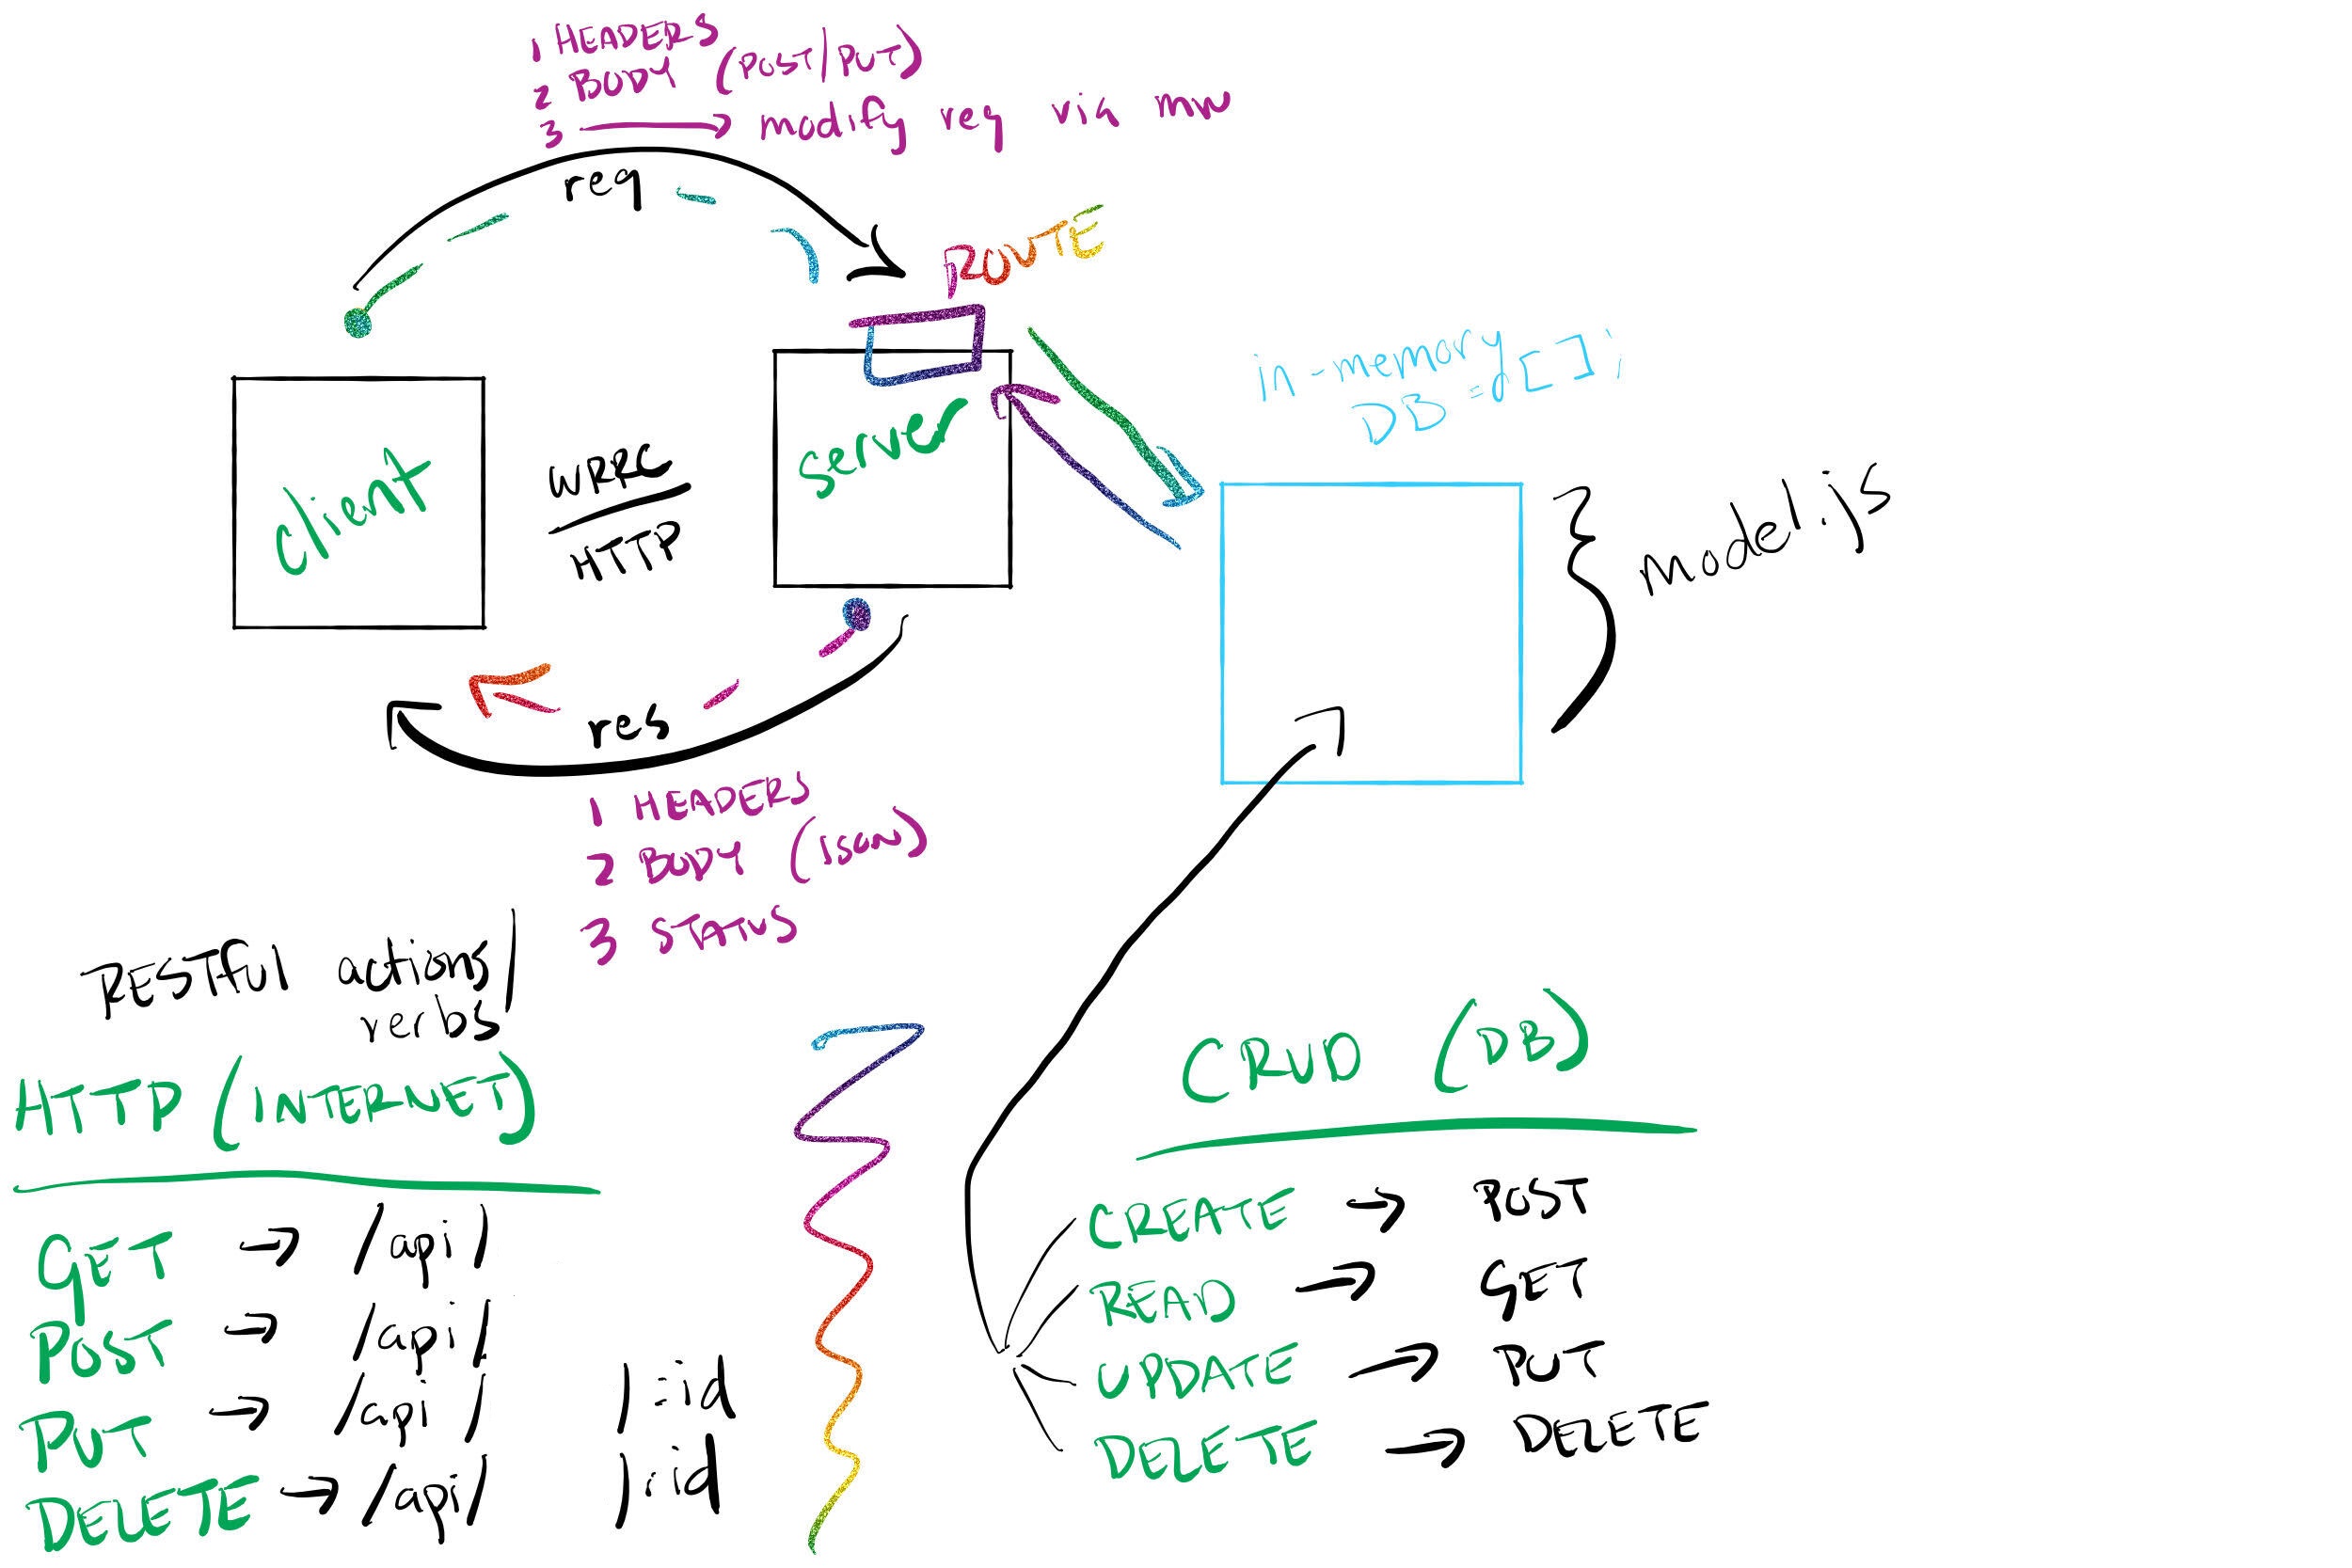 1 HEADERS
2 BODY (POST/PUT)
3 → modify req via mw
req
ROUTE
in-memory
DB = [ ];
client
WRRC
HTTP
server
model.js
res
1 HEADERS
2 BODY (JSON)
3 STATUS
RESTful actions/
verbs
HTTP (INTERNET)
GET → /api/
POST → /api/
PUT → /api/ /:id
DELETE → /api/ /:id
CRUD (DB)
CREATE → POST
READ → GET
UPDATE → PUT
DELETE → DELETE